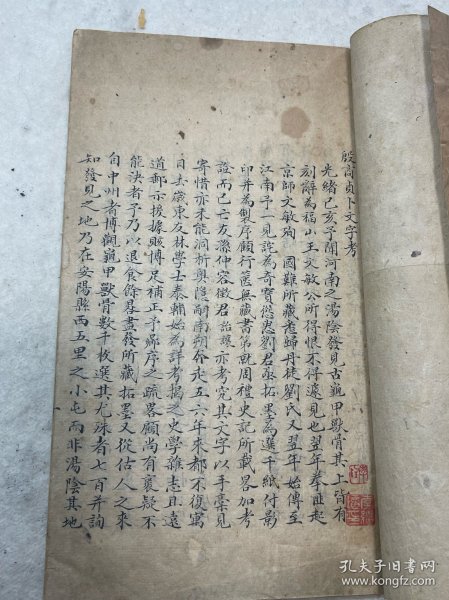 殷商貞卜文字考
光緒己亥予聞河南之湯陰發見古龜甲獸骨其上皆有
刻辭為福山王文敏公所得恨不得遽見也翌年拳匪起
京師文敏殉　國難所藏悉歸丹徒劉氏又翌年始傳至
江南予一見詫為奇寶慫恿劉君亟拓墨為選千紙付影
印并為製序顧行篋無藏書第就周禮史記所載畧加考
證而已亡友孫仲容徵君詒讓亦考究其文字以手稾見
寄惜亦未能洞析奧隱嗣南朔奔走五六年來都不復寓
目去歲東友林學士泰輔始為詳考揭之史學雜志且遠
道郵示援據賅博足補正予嚮序之疏畧顧尚有褱疑不
能決者予乃以退食餘晷盡發所藏拓墨又從估人之來
自中州者博觀龜甲獸骨數千枚選其尤殊者七百并詢
知發見之地乃在安陽縣西五里之小屯而非湯陰其地
孔夫子旧书网
book.kongfz.com